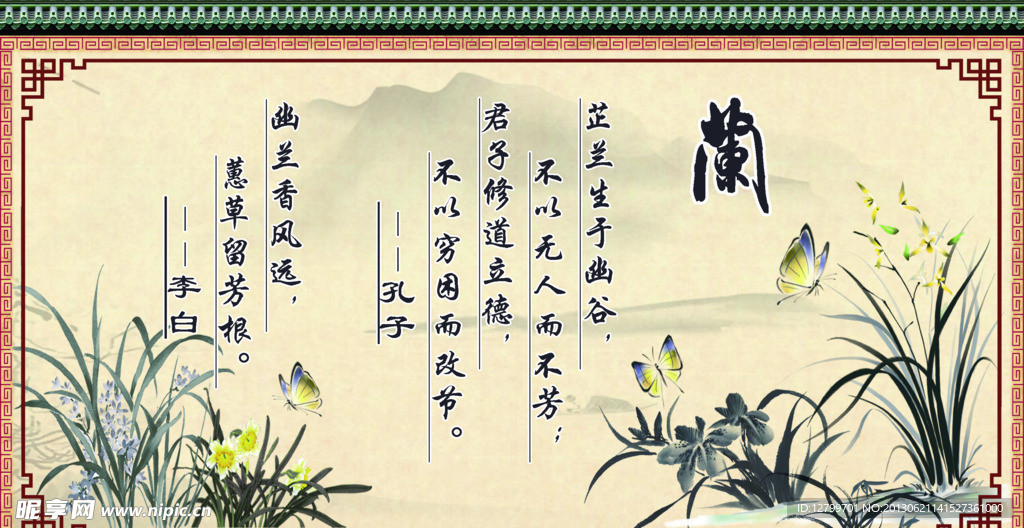 蘭
芷兰生于幽谷，
不以无人而不芳；
君子修道立德，
不以穷困而改节。
——孔子
幽兰香风远，
蕙草留芳根。
——李白
昵享网 www.nipic.cn
ID:12799701 NO:20130621141527361000